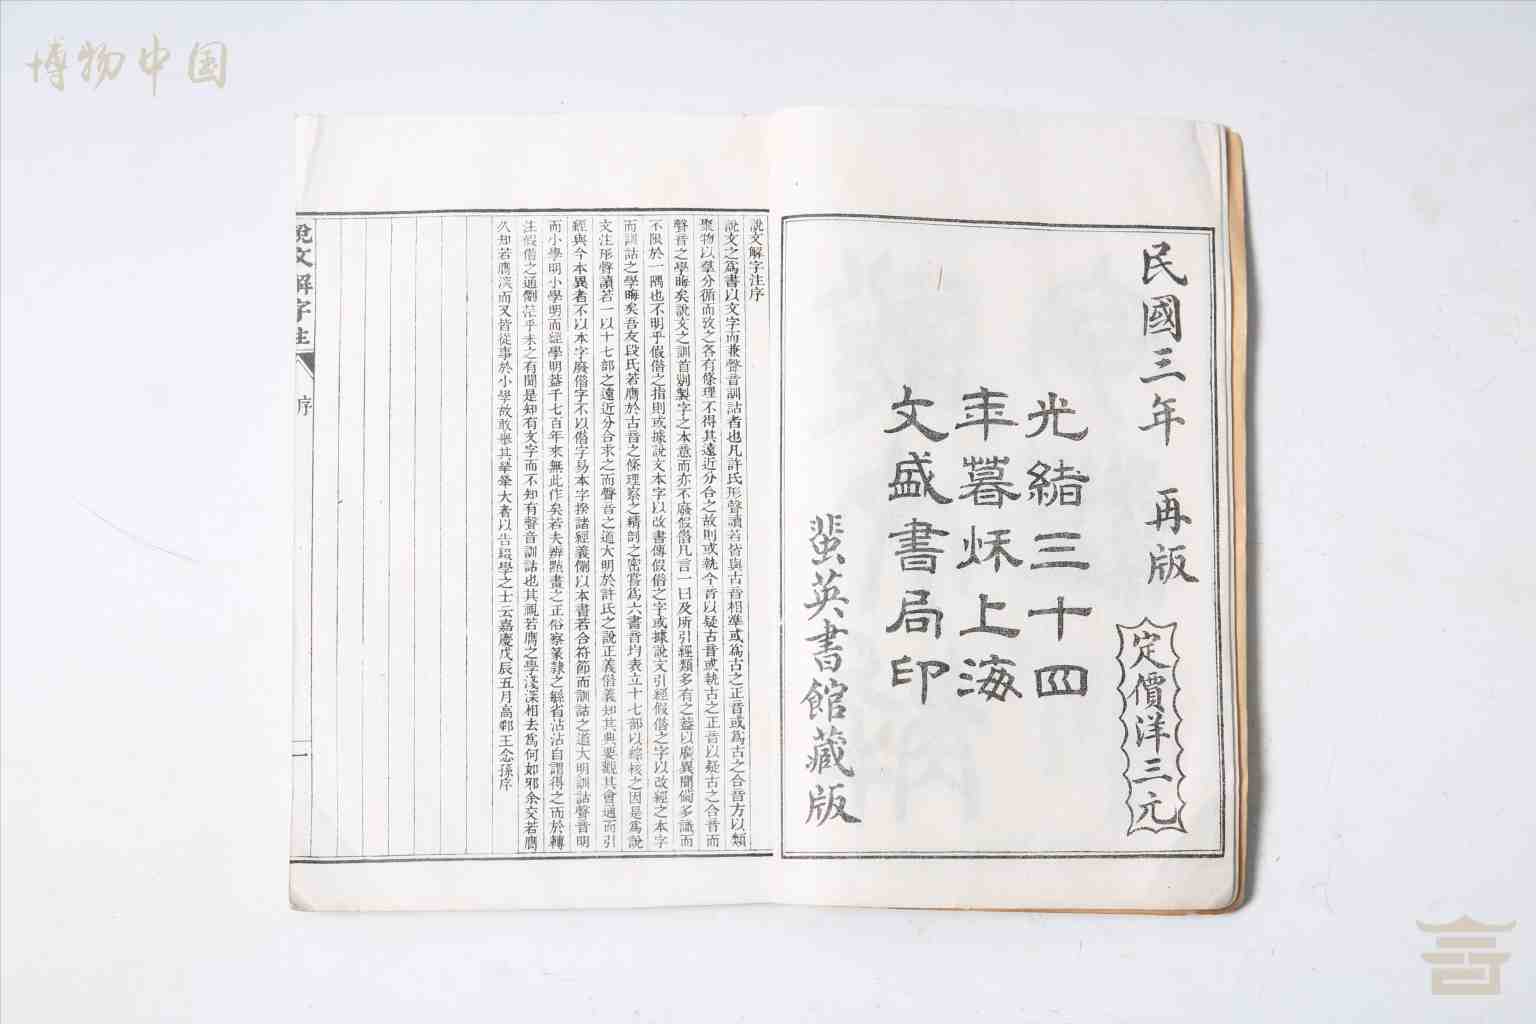 博物中国
民國三年 再版
定價洋三元
光緒三十四
年暮秌上海
文盛書局印
蜚英書館藏版
說文解字注序
說文之為書以文字而兼聲音訓詁者也凡許氏形聲讀若皆與古音相準或為古之正音或為古之合音方以類
聚物以羣分循而攷之各有條理不得其遠近分合之故則或執今音以疑古音或執古之正音以疑古之合音而
聲音之學晦矣說文之訓首列製字之本意而亦不廢假借凡言一曰及所引經類多有之葢以廣異聞備多識而
不限於一隅也不明乎假借之指則或據說文本字以改書傳假借之字或據說文引經假借之字以改經之本字
而訓詁之學晦矣吾友段氏若膺於古音之條理察之精剖之密嘗為六書音均表立十七部以綜核之因是為說
文注形聲讀若一以十七部之遠近分合求之而聲音之道大明於許氏之說正義借義知其典要觀其會通而引
經與今本異者不以本字廢借字不以借字易本字揆諸經義例以本書若合符節而訓詁之道大明訓詁聲音明
而小學明小學明而經學明葢千七百年來無此作矣若夫辨點畫之正俗察篆隸之繇省沾沾自謂得之而於轉
注假借之通例茫乎未之有聞是知有文字而不知有聲音訓詁也其視若膺之學淺深相去為何如邪余交若膺
久知若膺深而又皆從事於小學故敢舉其犖犖大者以告綴學之士云嘉慶戊辰五月高郵王念孫序
說文解字注
序
一